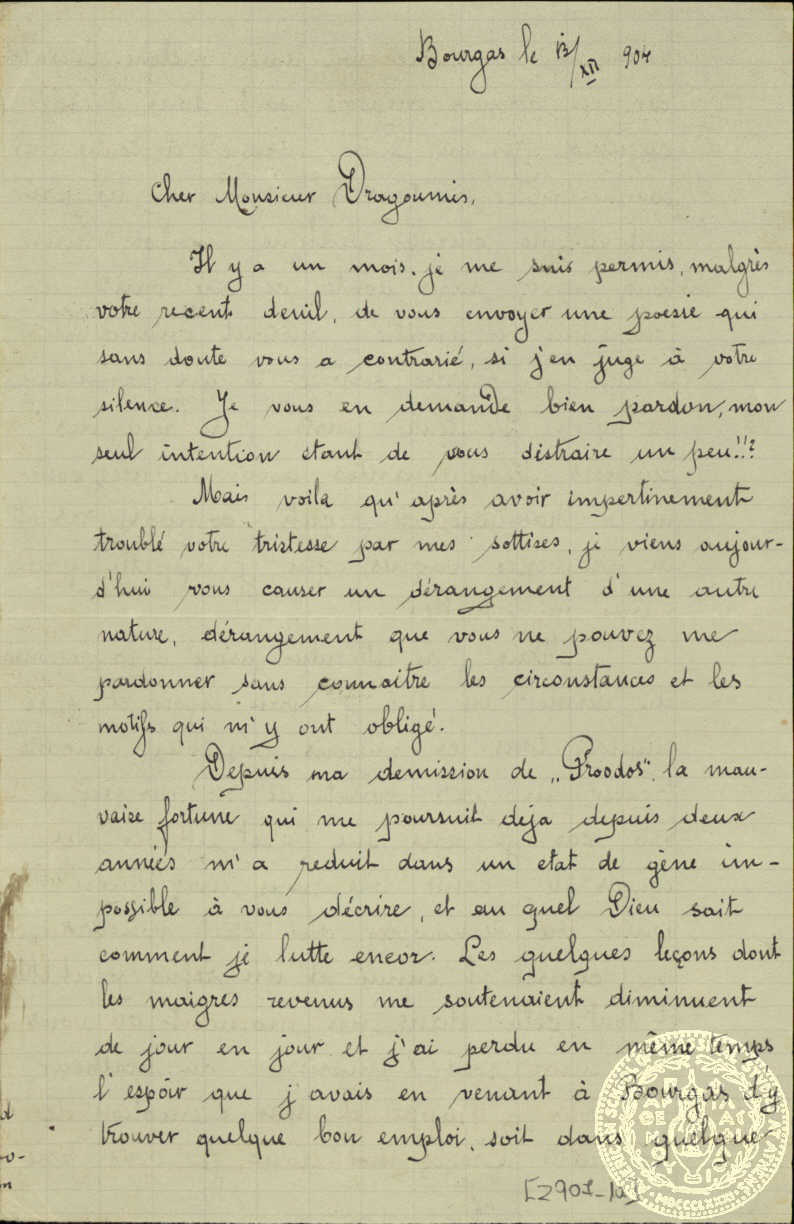 Bourgas le 13/XII 904
Cher Monsieur Dragoumis,
Il y a un mois, je me suis permis, malgrès
votre recent deuil, de vous envoyer une poesie qui
sans doute vous a contrarié, si j'en juge à votre
silence. Je vous en demande bien pardon, mon
seul intention etant de vous distraire un peu!!?
Mais voila qu'après avoir impertinement
troublé votre tristesse par mes sottises, je viens aujour-
d'hui vous causer un dérangement d'une autre
nature, dérangement que vous ne pouvez me
pardonner sans connaitre les circonstances et les
motifs qui m'y ont obligé.
Depuis ma demission de „Proodos", la mau-
vaise fortune qui me poursuit deja depuis deux
années m'a reduit dans un etat de gène im-
possible à vous décrire, et au quel Dieu sait
comment je lutte encor. Les quelques leçons dont
les maigres revenus me soutenaient diminuent
de jour en jour et j'ai perdu en même temps
l'espoir que j'avais en venant à Bourgas d'y
trouver quelque bon emploi, soit dans quelque
[290I-1a]